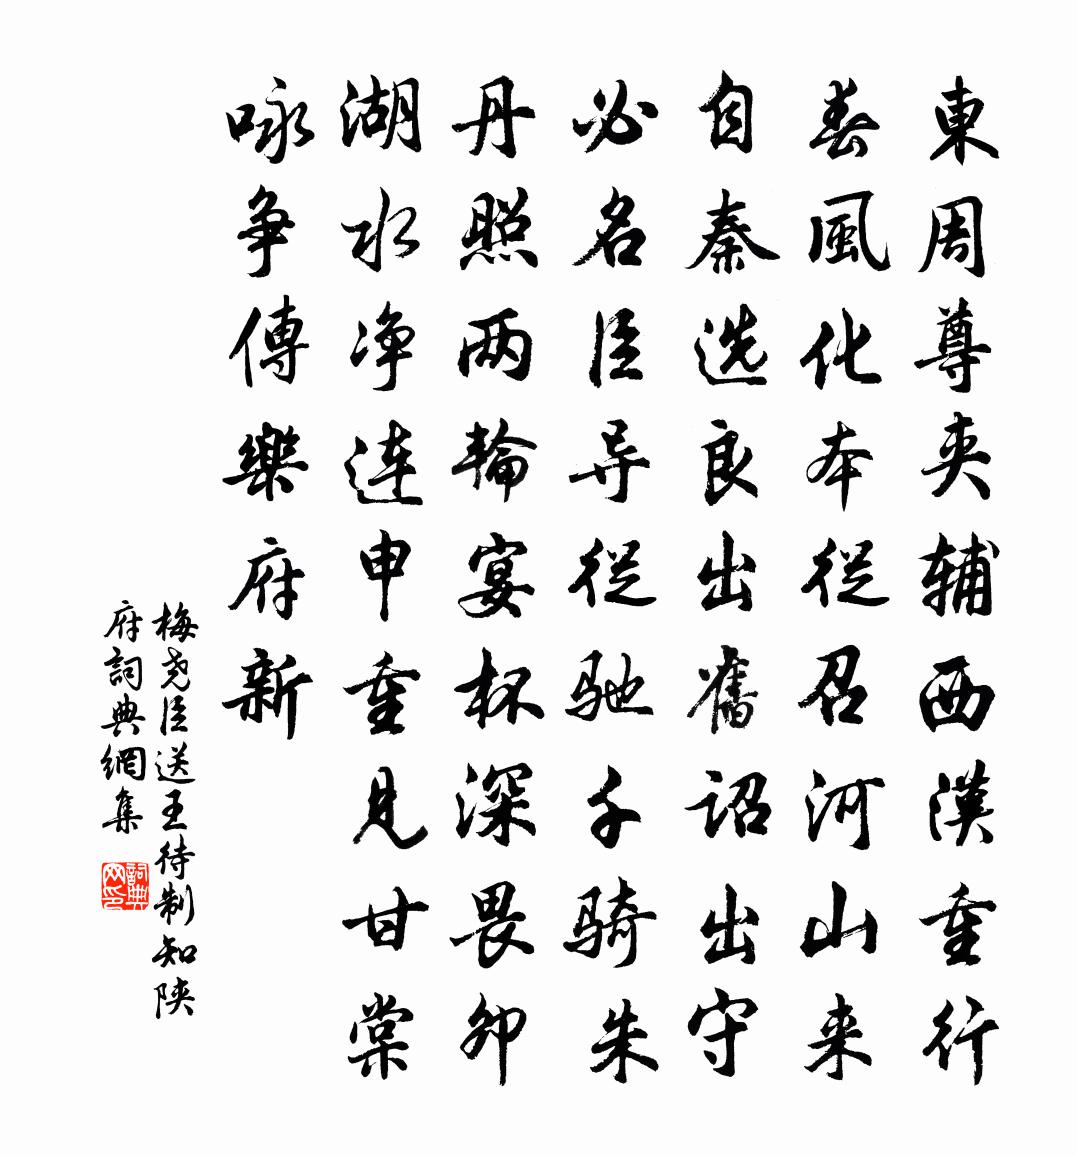 東周尊夾辅西漢重行
春風化本從召河山来
自秦选良出舊诏出守
必名臣导從驰千骑朱
丹照两輪宴杯深畏卯
湖水净连申重見甘棠
咏争傳樂府新
梅尧臣送王待制知陕
府詞典網集
詞典
网印